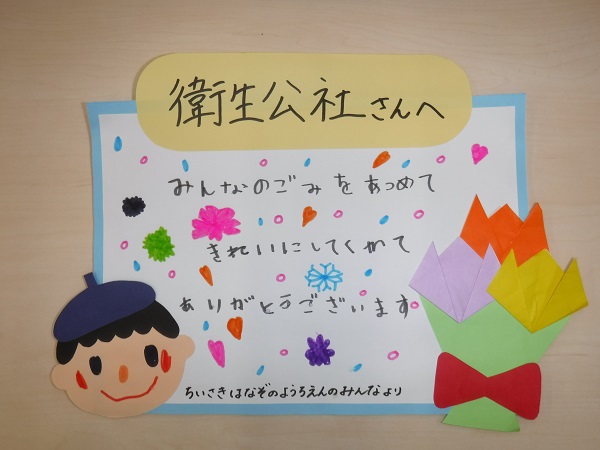 衛生公社さんへ
みんなのごみをあつめて
きれいにしてくれて
ありがとうございます
ちいさきはなぞのようちえんのみんなより